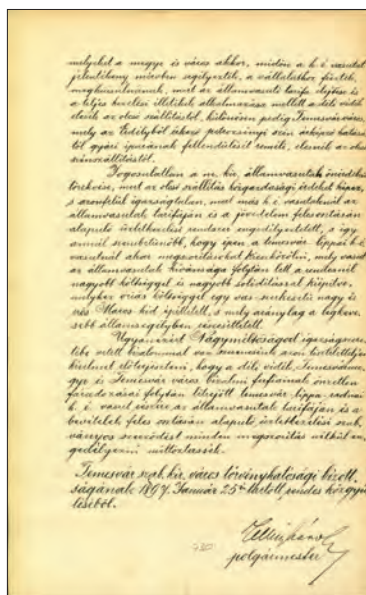 melyeket a megye és város akkor, midőn a h. é. vasutat
jelentékeny mérvben segélyezték, a vállalathoz fűztek,
meghiusulnának, mert az államvasuti tarifa elejtése és
a teljes kezelési illetékek alkalmazása mellett a déli vidék
elesik az olcsó szállitástól, különösen pedig Temesvár város,
mely az Erdélyből érkező petrozsényi szén árképző hatásá-
tól gyári iparának fellenditését reméli, elesnék az olcsó
szénszállitástól.
Jogosulatlan a m. kir. államvasutak önérdekű
törekvése, mert az olcsó szállitás közgazdasági érdeket képez,
s azonfelül igazságtalan, mert más h. é. vasutaknál az
államvasutak tarifáján és a jövedelem felosztásán
alapuló üzletkezelési rendszer engedélyeztetett, s így
annál sérelmesebb, hogy épen a temesvár-lippai h. é.
vasutnál akar megszoritásokat kieszközölni, mely vasut
az államvasutak kivánsága folytán lett a rendesnél
nagyobb költséggel és nagyobb soliditással kiépitve,
melyhez óriás költséggel egy vas szerkezetű nagy
Maros hid épittetett, s mely aránylag a legkeve-
sebb államsegélyben részesittetett.
Ugyanezért Nagyméltóságod igazságszere-
tetébe vetett bizalommal van szerencsénk azon tiszteletteljes
kérelmet előterjeszteni, hogy a déli vidék, Temesvárme-
gye és Temesvár város bizalmi férfiainak önzetlen
fáradozásai folytán létrejött temesvár-lippa-radnai
h. é. vasut részére az államvasutak tarifáján és a
bevételek feles osztásán alapuló üzletkezelési szab-
ványos szerződést minden megszoritás nélkül en-
gedélyezni méltóztassék.
Temesvár szab. kir. város törvényhatósági bizott-
ságának 1897. Január 25-én tartott rendes közgyü-
léséből.
polgármester